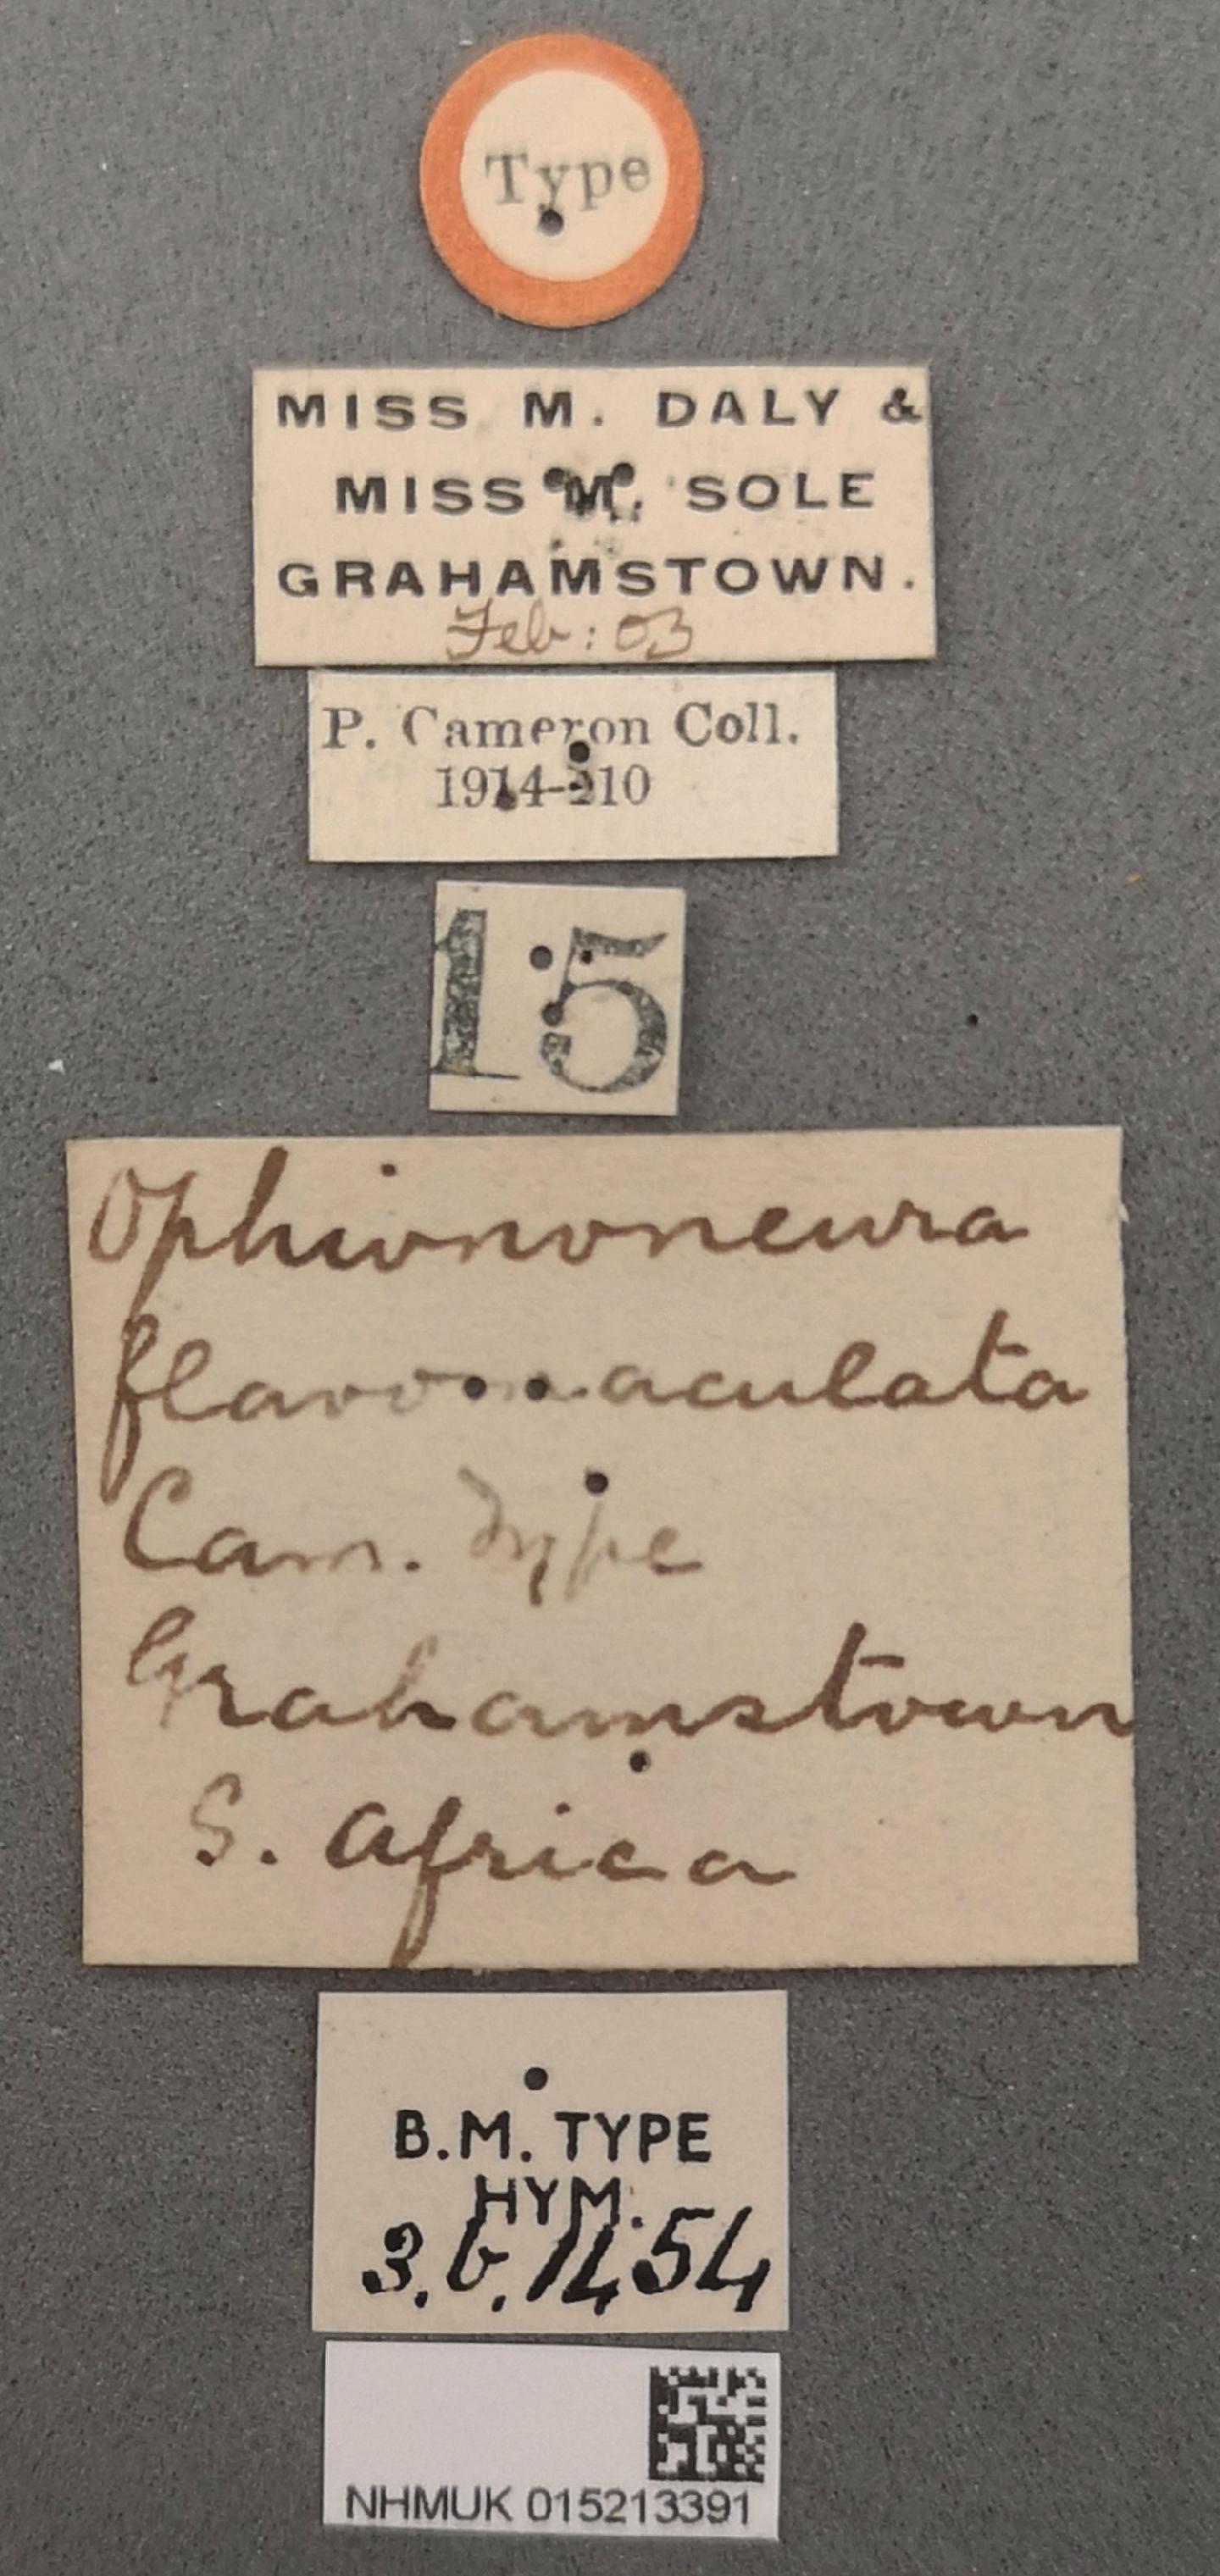 Type
MISS M. DALY &
MISS M. SOLE
GRAHAMSTOWN.
Feb: 03
P. Cameron Coll.
1914-110
15
Ophiononeura
flavomaculata
Cam. Type
Grahamstown
S. Africa
B.M. TYPE
HYM.
3.b.1454
NHMUK 015213391